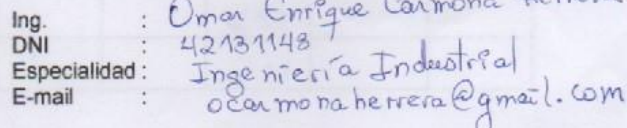 Ing. : Omar Enrique Carmona Herrera
DNI : 42131148
Especialidad : Ingeniería Industrial
E-mail : ocarmonaherrera@gmail.com